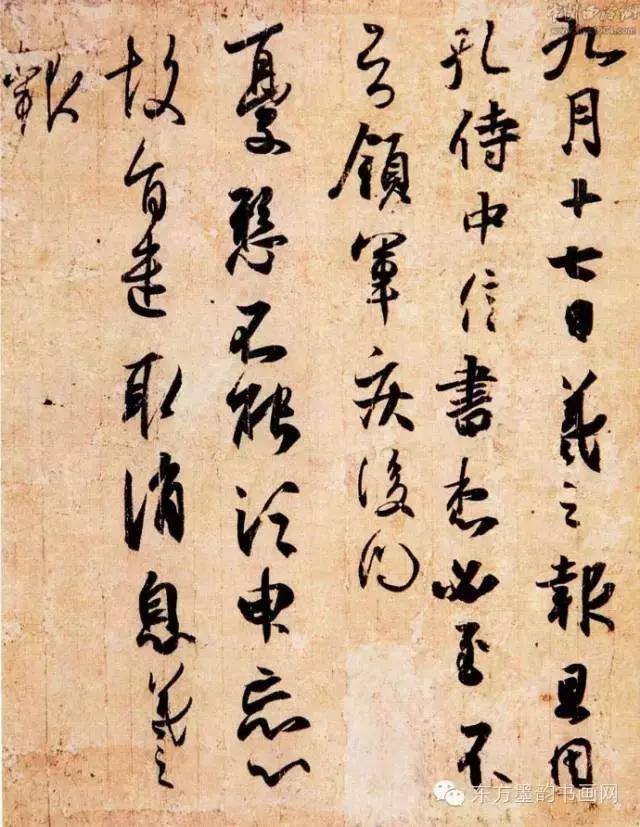 九月十七日羲之報且因
孔侍中信書想必至不
知領軍疾後問
憂懸不能須臾忘心
故旨遣取消息羲之
報
东方墨韵书画网